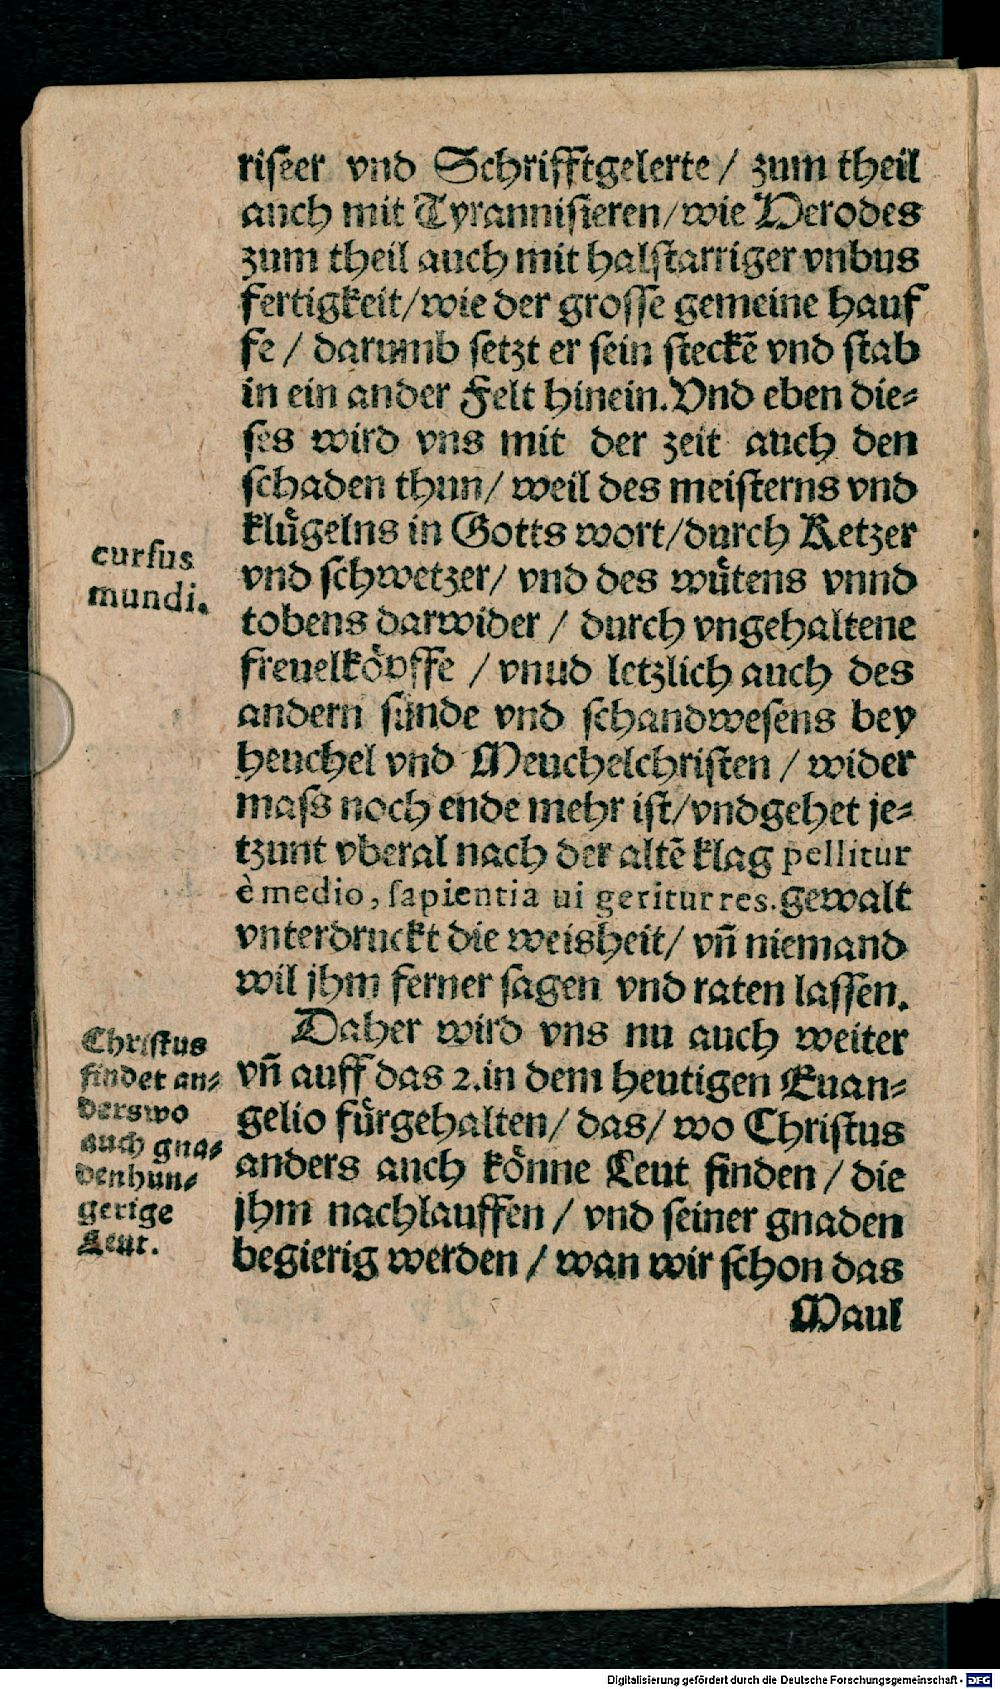 riseer vnd Schrifftgelerte / zum theil
auch mit Tyrannisieren/wie Herodes
zum theil auch mit halstarriger vnbus
fertigkeit/wie der grosse gemeine hauf
fe / darumb setzt er sein steckẽ vnd stab
in ein ander Felt hinein.Vnd eben die-
ses wird vns mit der zeit auch den
schaden thun/ weil des meisterns vnd
klügelns in Gotts wort/durch Ketzer
vnd schwetzer/ vnd des wütens vnnd
tobens darwider / durch vngehaltene
freuelköpffe / vnud letzlich auch des
andern sünde vnd schandwesens bey
heuchel vnd Meuchelchristen / wider
mass noch ende mehr ist/vndgehet je-
tzunt vberal nach der altẽ klag pellitur
è medio, sapientia ui geritur res.gewalt
vnterdruckt die weisheit/ vñ niemand
wil jhm ferner sagen vnd raten lassen.
Daher wird vns nu auch weiter
vñ auff das 2.in dem heutigen Euan-
gelio fürgehalten/ das/ wo Christus
anders auch könne Leut finden / die
jhm nachlauffen / vnd seiner gnaden
begierig werden / wan wir schon das
Maul
cursus
mundi.
Christus
findet an-
derswo
auch gna-
denhun-
gerige
Leut.
Digitalisierung gefördert durch die Deutsche Forschungsgemeinschaft - DFG